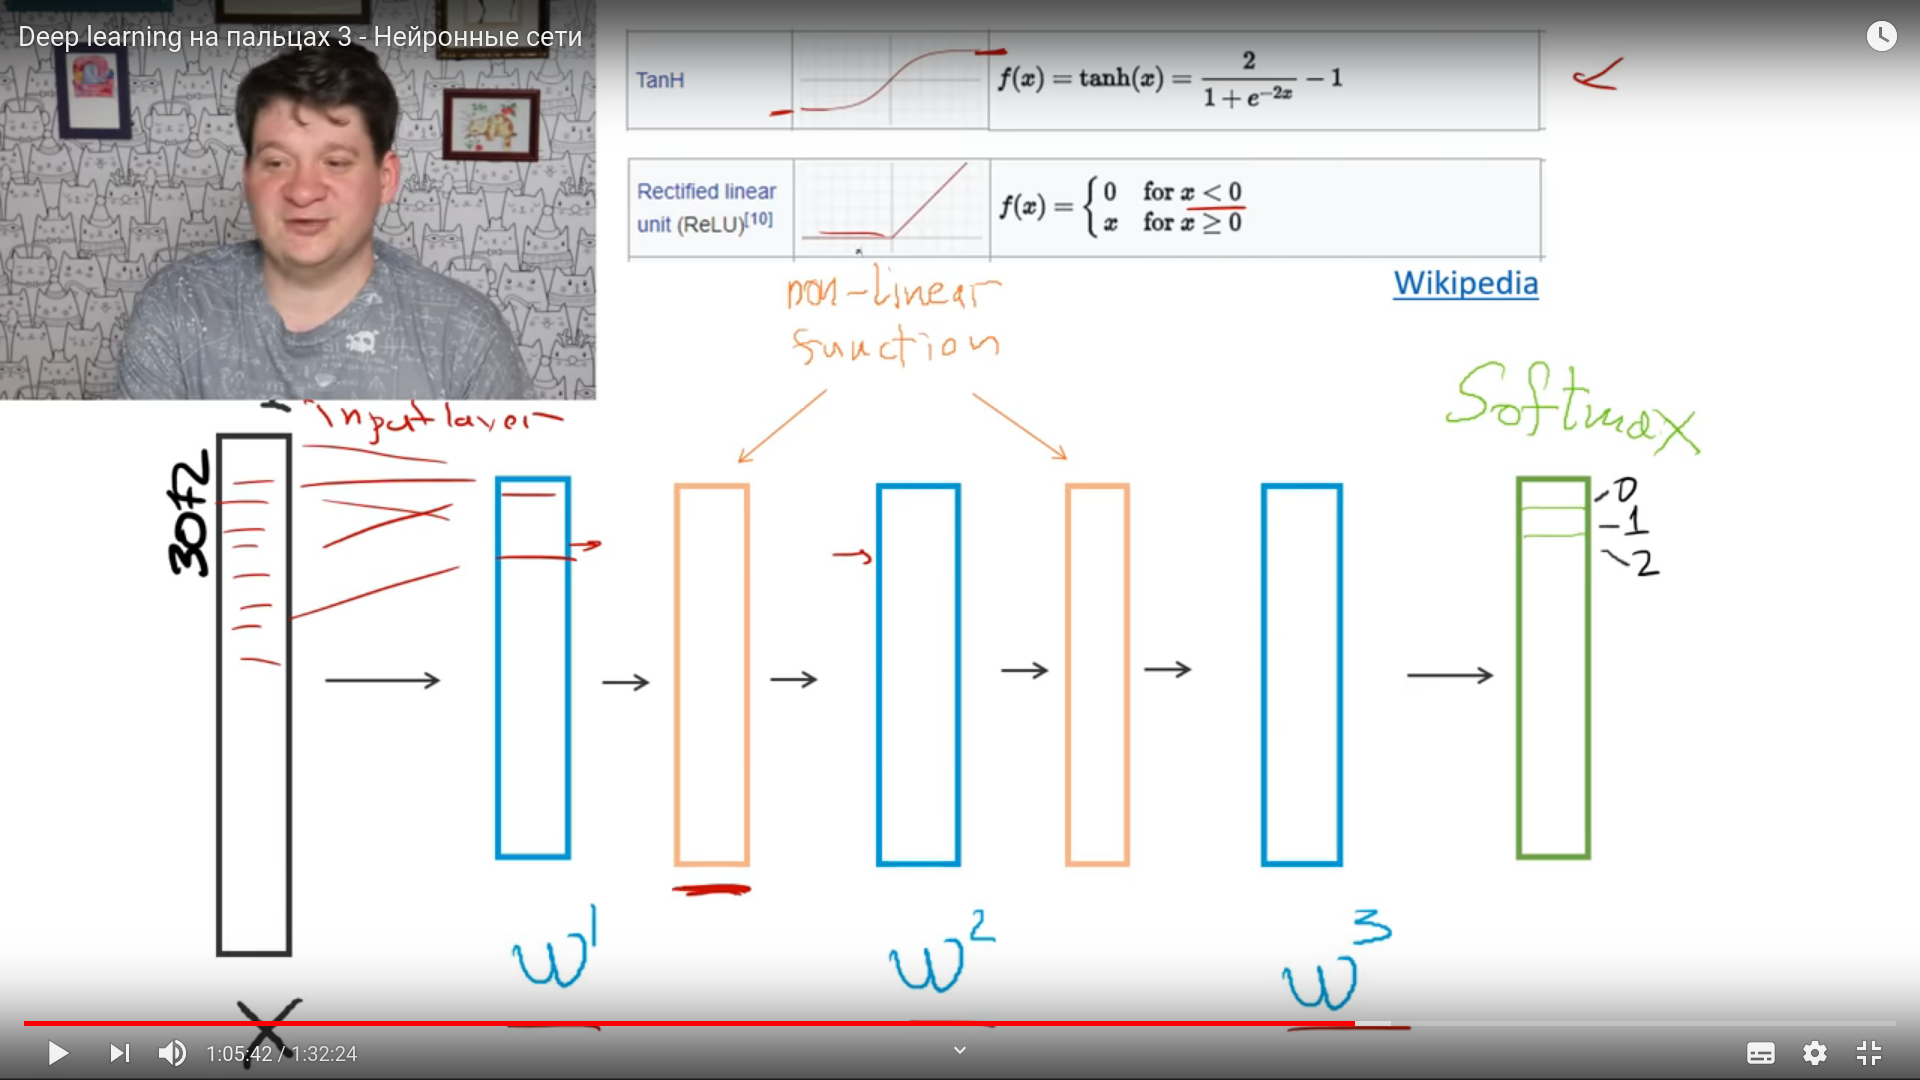 Deep learning на пальцах 3 - Нейронные сети
TanH
f(x) = tanh(x) = 2 / (1 + e^{-2x}) - 1
Rectified linear
unit (ReLU)[10]
f(x) = { 0 for x < 0
x for x ≥ 0
Wikipedia
non-linear
function
Softmax
input layer
3072
0
1
2
w^1
w^2
w^3
X
1:05:42 / 1:32:24